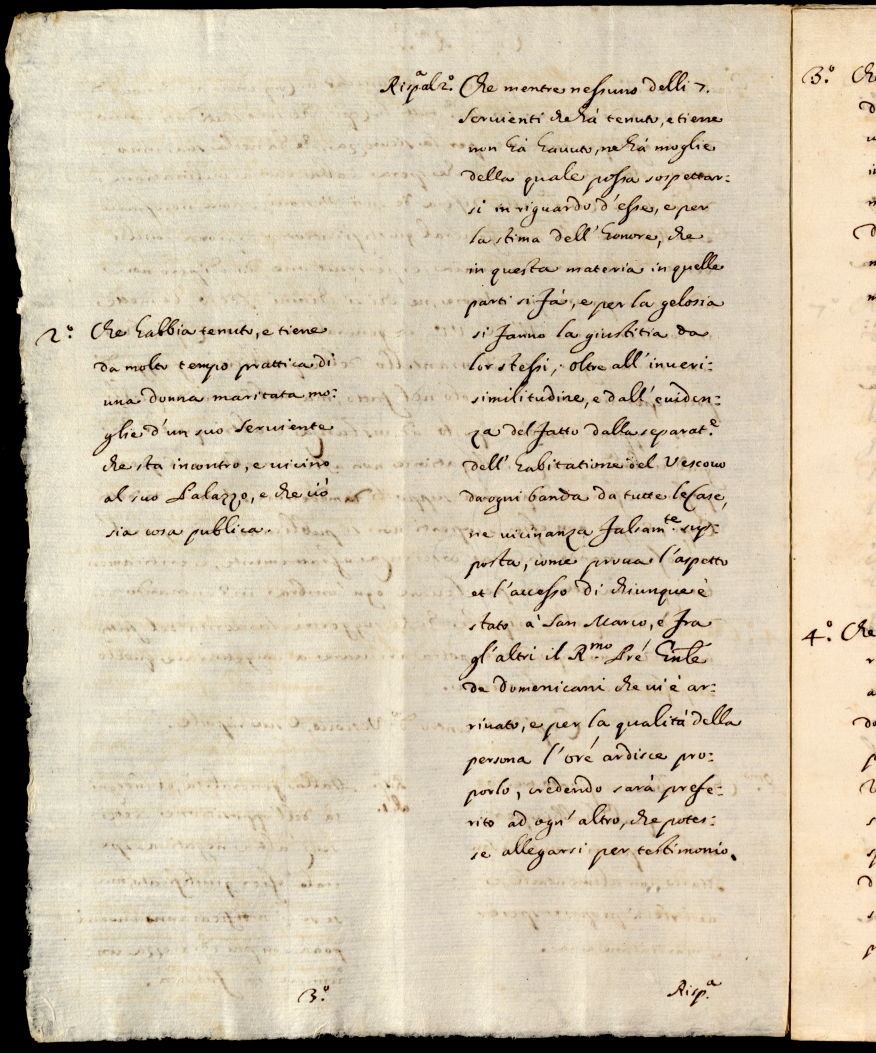 2.º Che habbia tenuto, e tiene
da molto tempo prattica di
una donna maritata mo:
glie d'un suo Serviente
che sta incontro, e vicino
al suo Palazzo, e che ciò
sia cosa publica.
3.º
Risp.ª al 2.º Che mentre nessuno delli 7.
Servienti che hà tenuto, e tiene
non hà havuto, ne hà moglie
della quale possa sospettar:
si in riguardo d'esse, e per
la stima dell'honore, che
in questa materia in quelle
parti si fà, e per la gelosia
si fanno la giustitia da
lor stessi, oltre all'inveri:
similitudine, e dall'eviden:
za del fatto dalla separat.e
dell'habitatione del Vescovo
da ogni banda da tutte le Case,
ne vicinanza falsam.te sup:
posta, come prova l'aspetto
et l'accesso di chiunque è
stato à San Marco, e fra
gl'altri il R.mo Pre Gnle
de Domenicani che vi è ar:
rivato, e per la qualità della
persona l'ore ardisce pro:
porlo, credendo sarà prefe:
rito ad ogn'altro, che potes:
se allegarsi per testimonio.
Risp.ª
3.º Ch
4.º Che